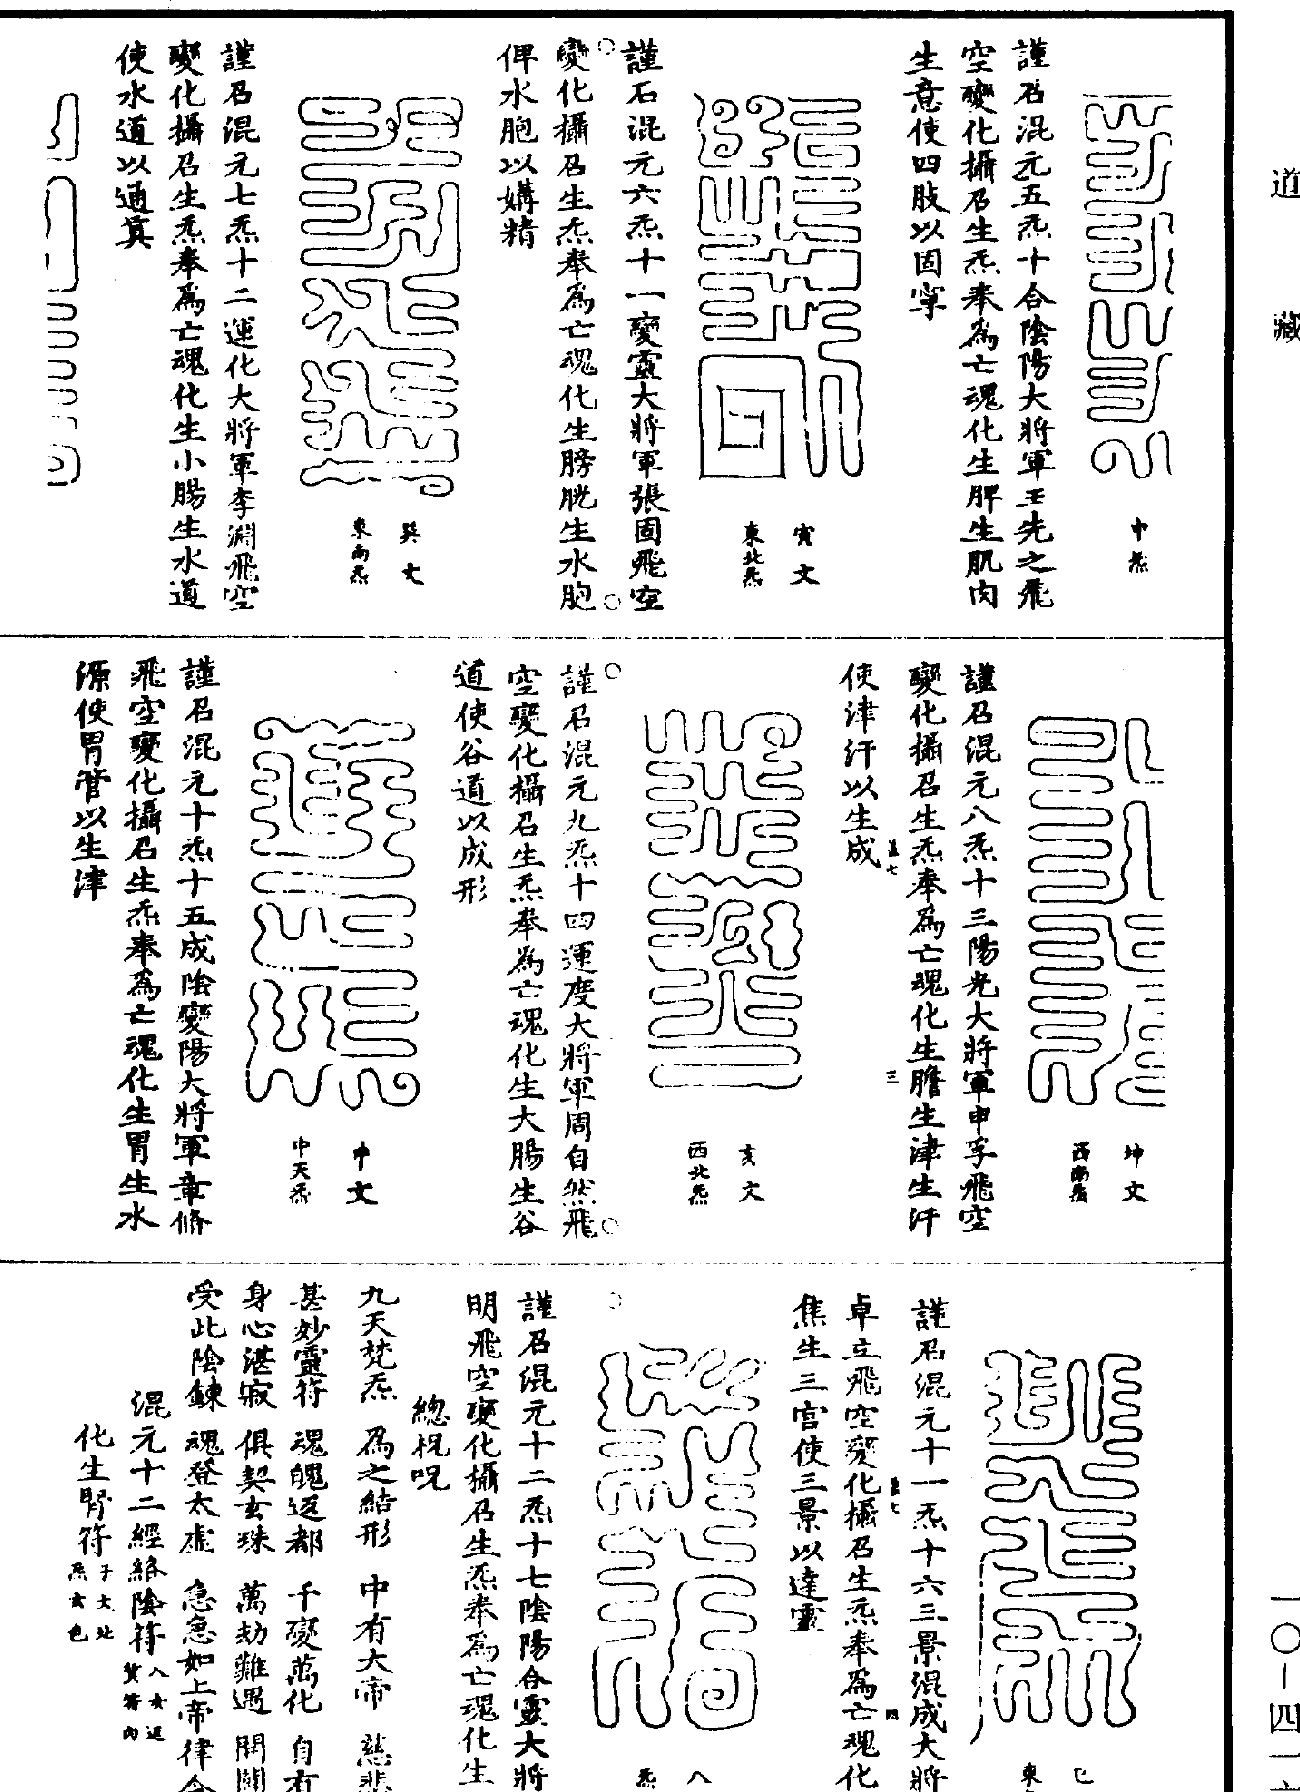 道藏
一〇—四一
中炁
謹召混元五炁十合陰陽大將軍王先之飛
空變化攝召生炁奉爲亡魂化生脾生肌肉
生意使四肢以固寧
寅文
東北炁
謹石混元六炁十一變靈大將軍張固飛空
變化攝召生炁奉爲亡魂化生膀胱生水胞
俾水胞以媾精
巽文
東南炁
謹召混元七炁十二運化大將軍李淵飛空
變化攝召生炁奉爲亡魂化生小腸生水道
使水道以通箕
坤文
西南炁
謹召混元八炁十三陽光大將軍申孚飛空
變化攝召生炁奉爲亡魂化生膽生津生汗
使津汗以生成
三
亥文
西北炁
謹召混元九炁十四運度大將軍周自然飛
空變化攝召生炁奉爲亡魂化生大腸生谷
道使谷道以成形
中文
中天炁
謹召混元十炁十五成陰變陽大將軍章脩
飛空變化攝召生炁奉爲亡魂化生胃生水
源使胃管以生津
東
謹召混元十一炁十六三景混成大將
卓立飛空變化攝召生炁奉爲亡魂化
焦生三宮使三景以達靈
四
八
炁
謹召混元十二炁十七陰陽合靈大將
明飛空變化攝召生炁奉爲亡魂化生
總祝呪
九天梵炁 爲之結形 中有大帝 慈悲
甚妙靈符 魂魄返都 千變萬化 自有
身心湛寂 俱契玄珠 萬劫難遇 開關
受此陰鍊 魂登太虛 急急如上帝律令
混元十二經絡陰符
化生腎符 子文北炁玄色